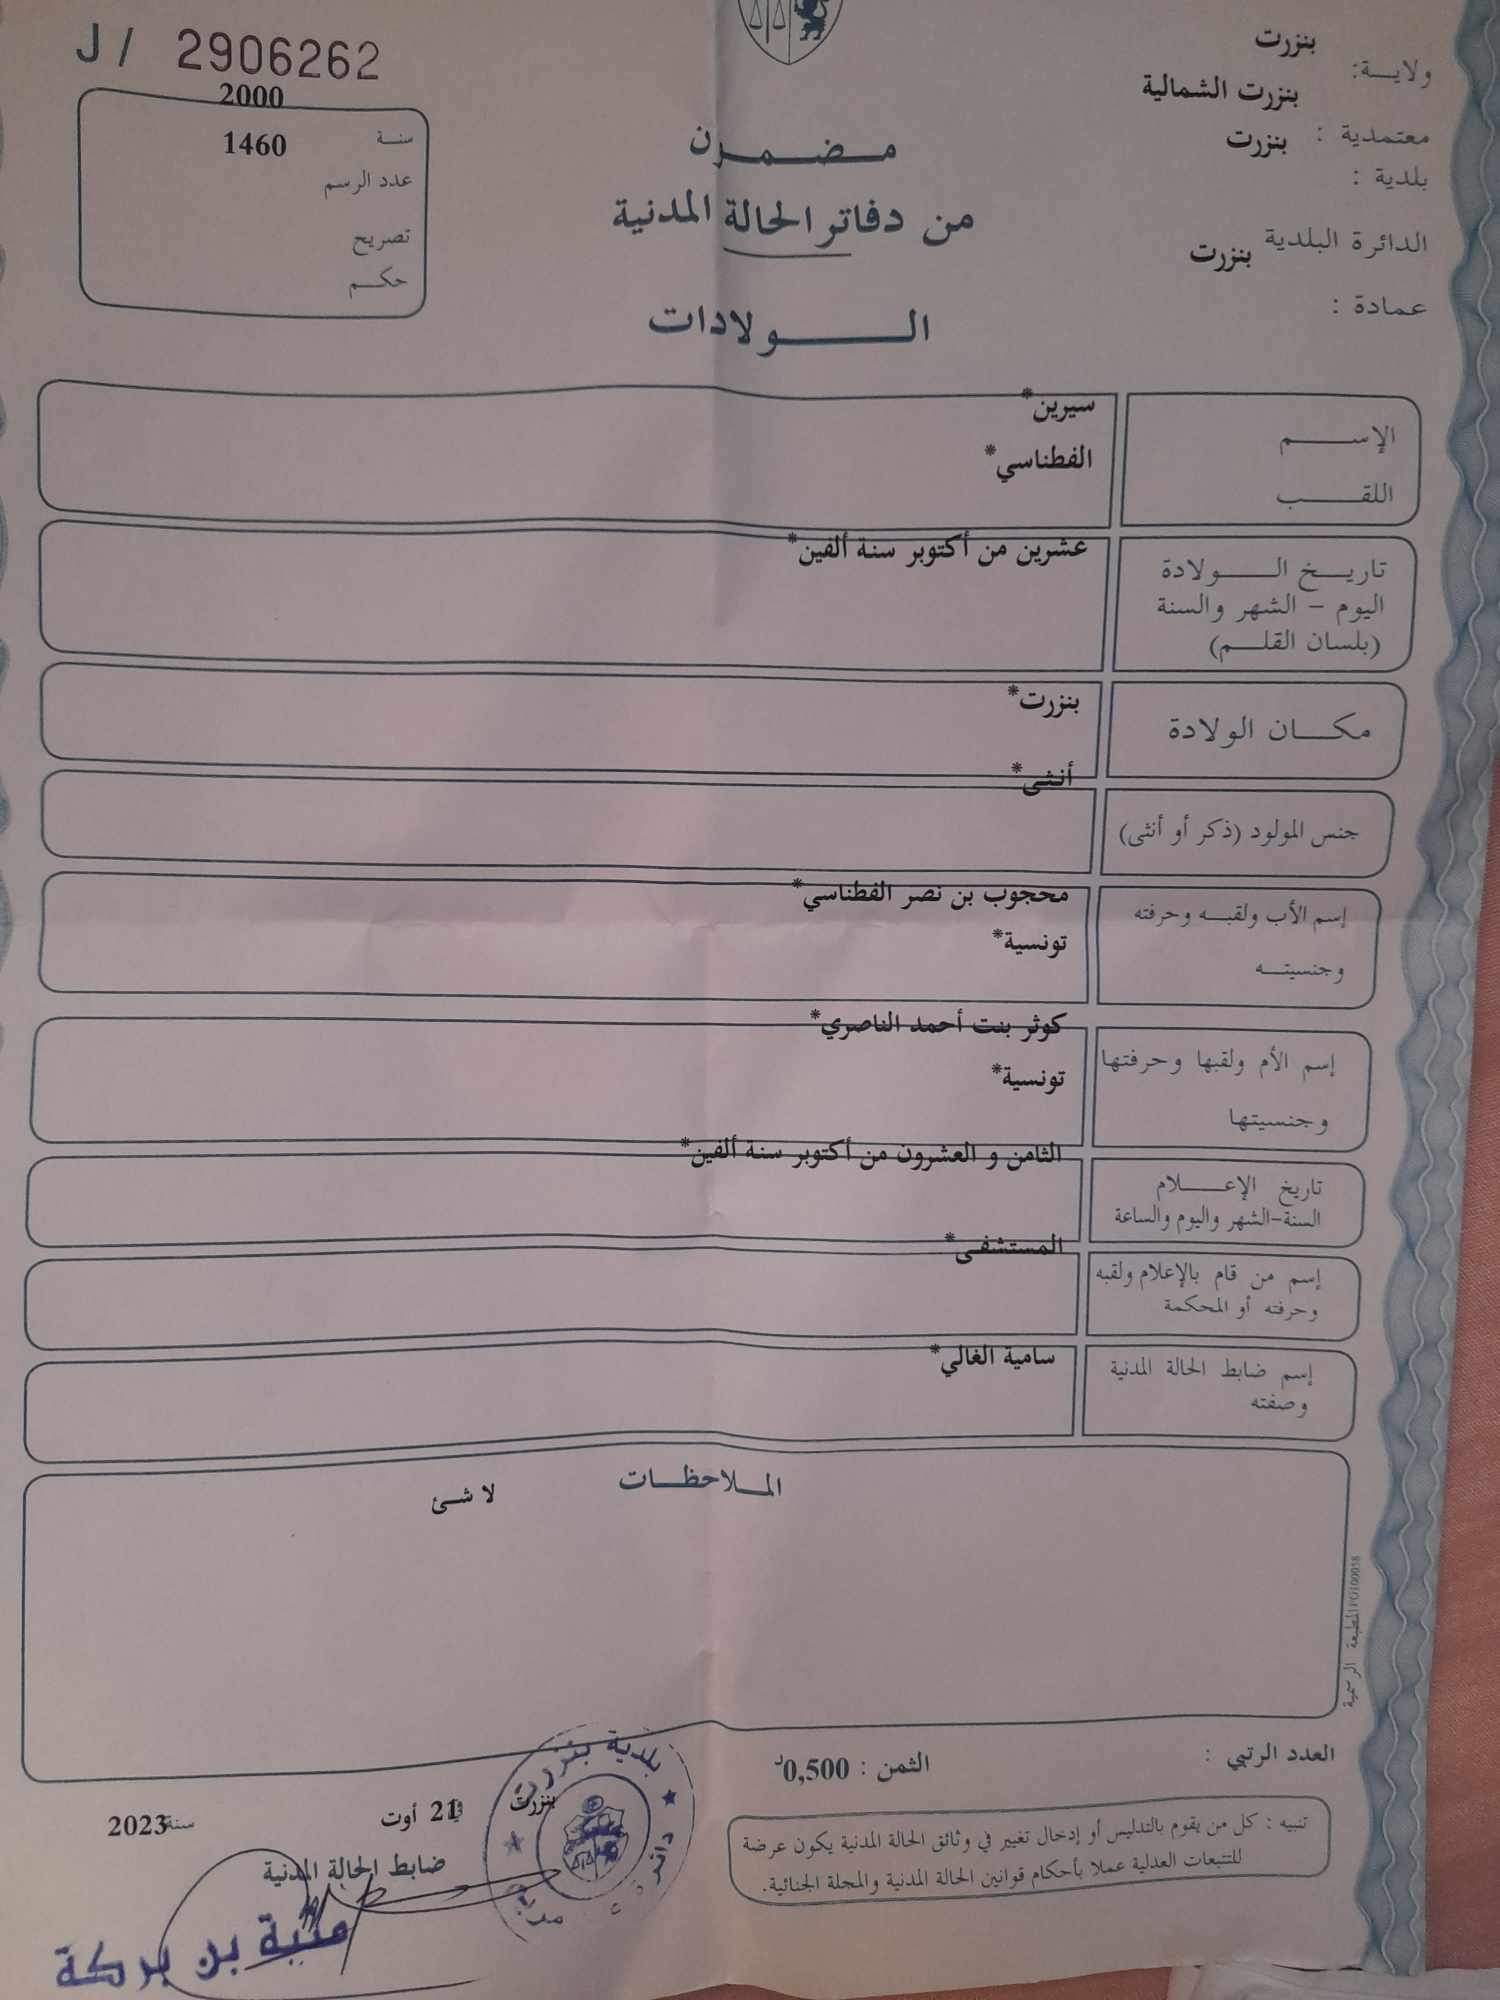 J / 2906262
ولاية: بنزرت
معتمدية : بنزرت الشمالية
بلدية : بنزرت
الدائرة البلدية بنزرت
عمادة :
2000
سنة
1460
عدد الرسم
تصريح
حكم
مضمون
من دفاتر الحالة المدنية
الولادات
الإسم سيرين*
اللقب الفطناسي*
تاريخ الولادة عشرين من أكتوبر سنة ألفين*
اليوم - الشهر والسنة
(بلسان القلم)
مكان الولادة بنزرت*
جنس المولود (ذكر أو أنثى) أنثى*
إسم الأب ولقبه وحرفته محجوب بن نصر الفطناسي*
وجنسيته تونسية*
إسم الأم ولقبها وحرفتها كوثر بنت أحمد الناصري*
وجنسيتها تونسية*
تاريخ الإعلام الثامن و العشرون من أكتوبر سنة ألفين*
السنة-الشهر واليوم والساعة
إسم من قام بالإعلام ولقبه المستشفى*
وحرفته أو المحكمة
إسم ضابط الحالة المدنية سامية الغالي*
وصفته
الملاحظات
لا شئ
المطبعة الرسمية PO100058
العدد الرتبي :
الثمن : 0,500د
تنبيه : كل من يقوم بالتدليس أو إدخال تغيير في وثائق الحالة المدنية يكون عرضة
للتتبعات العدلية عملا بأحكام قوانين الحالة المدنية والمجلة الجنائية.
بلدية بنزرت
بنزرت في 21 أوت سنة 2023
ضابط الحالة المدنية
منية بن بركة